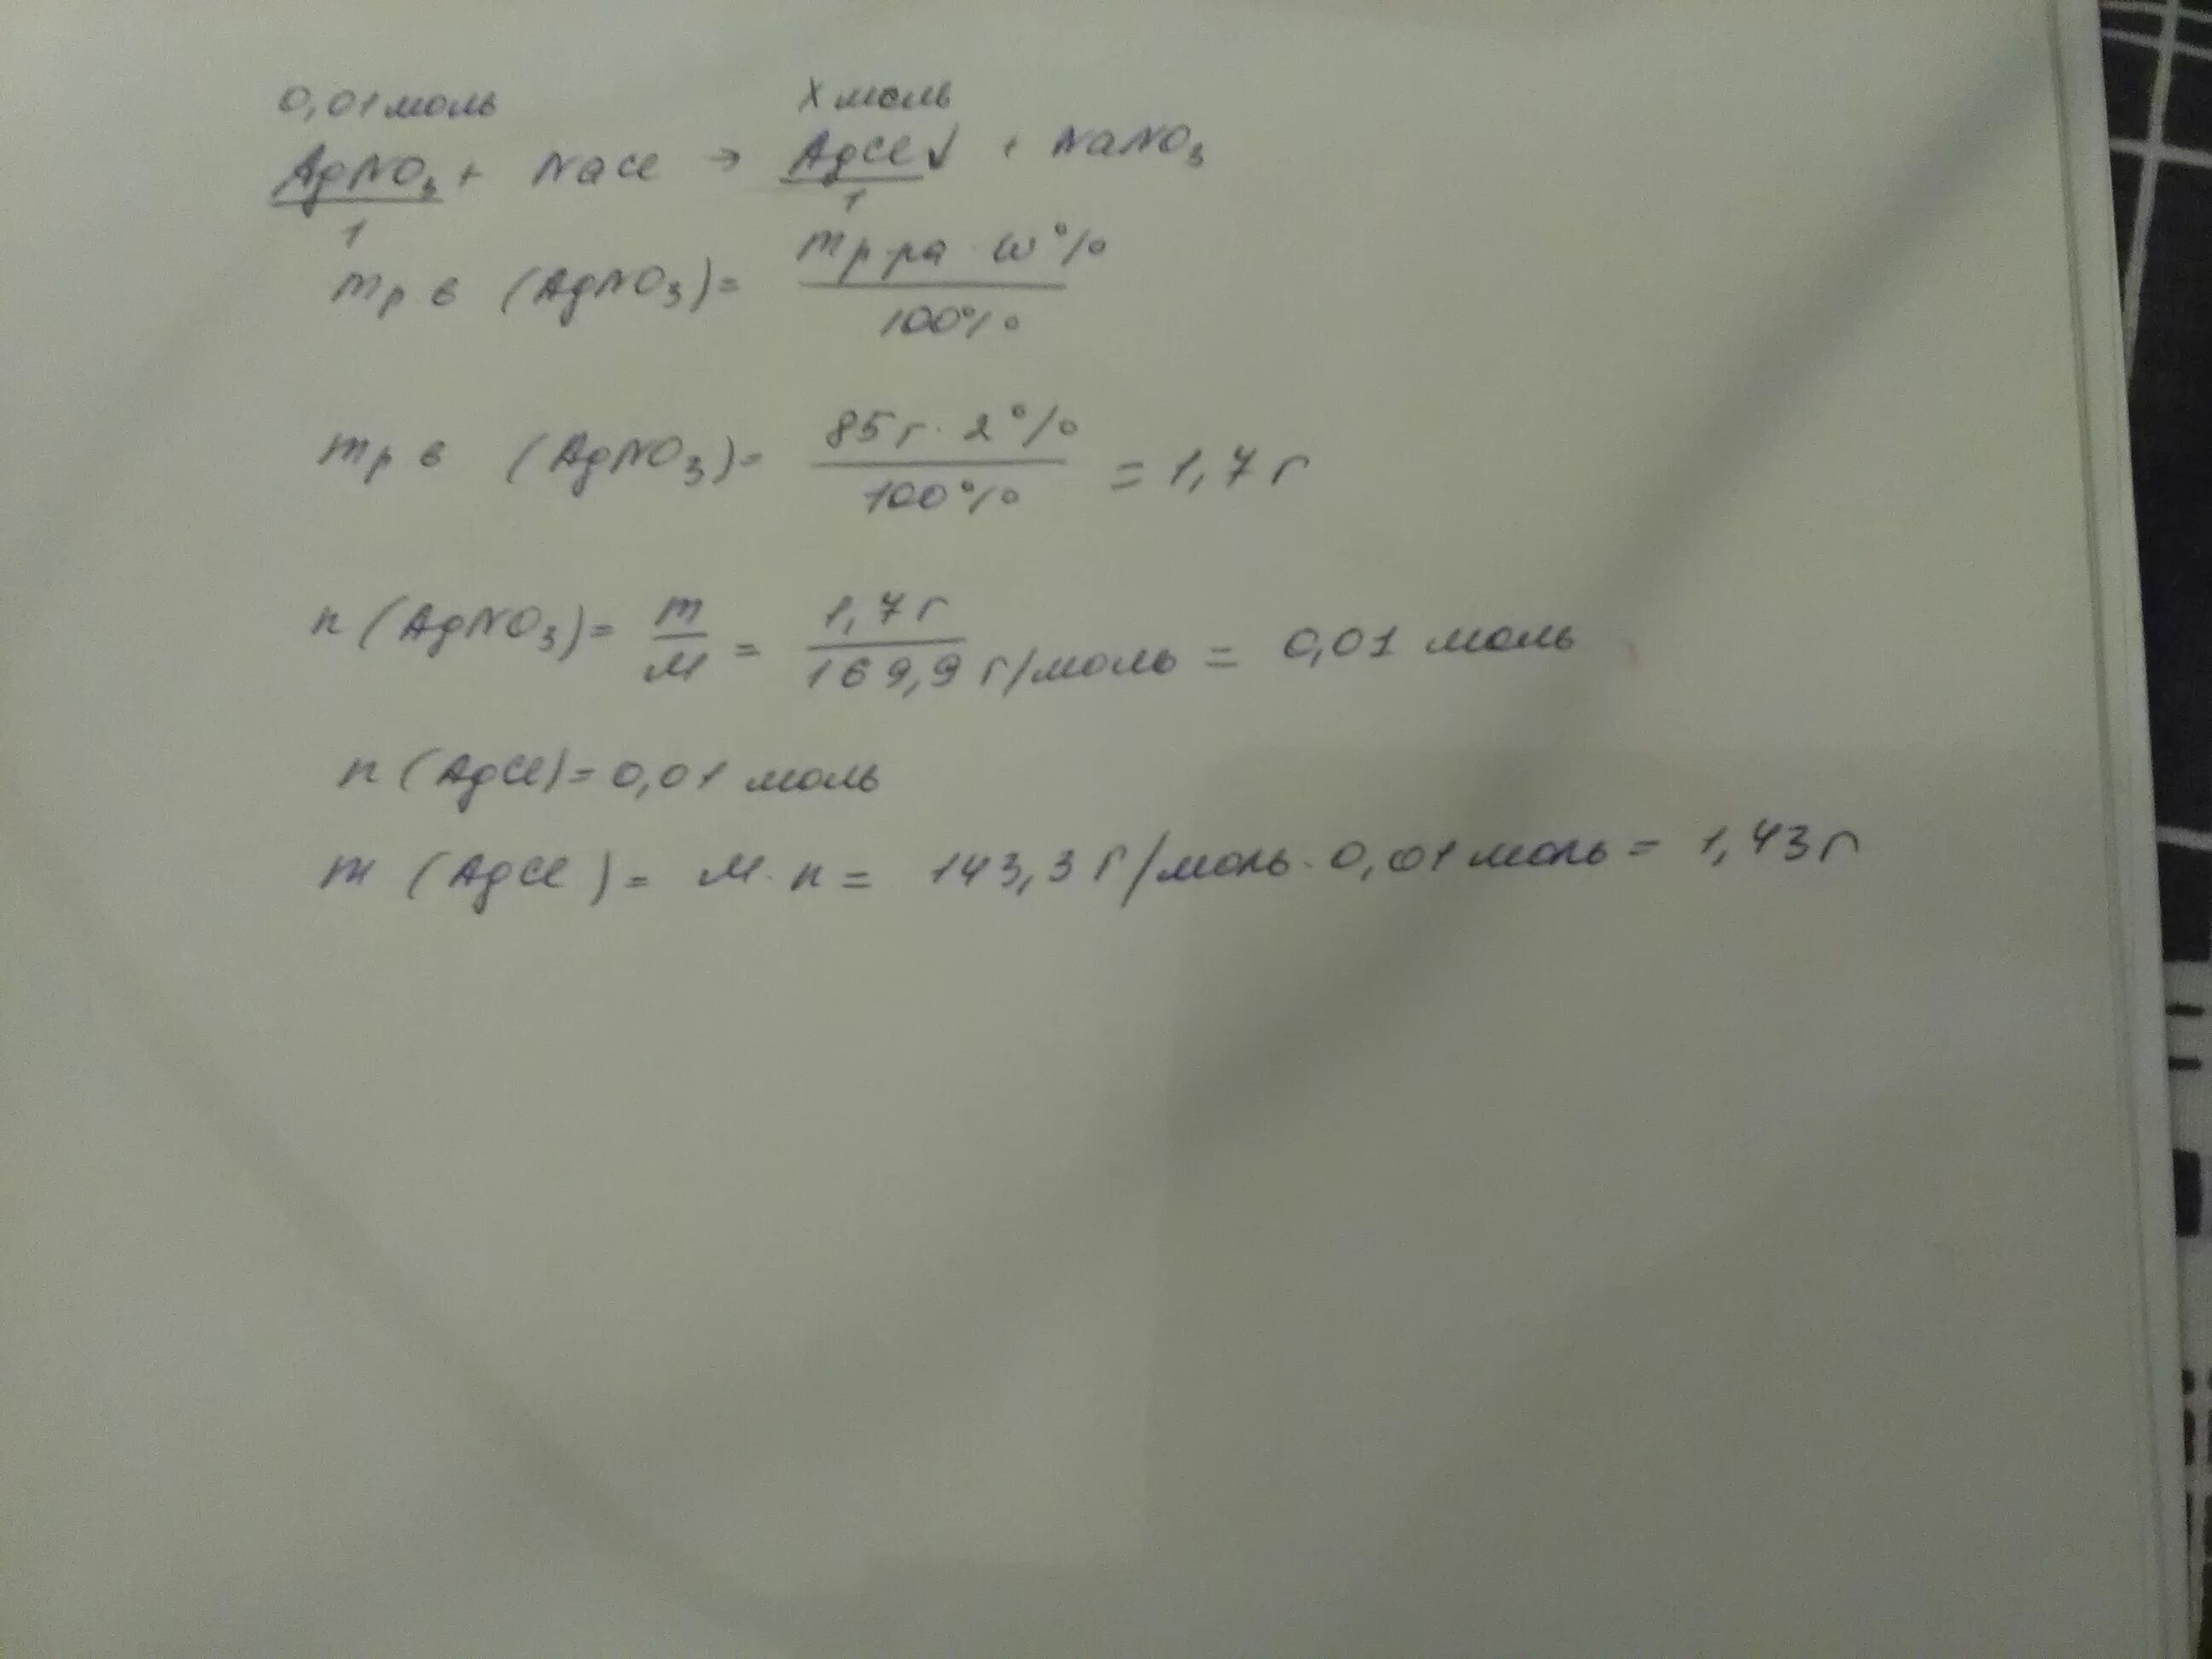 0,01 моль X моль
AgNO3 + NaCl → AgCl↓ + NaNO3
1 1
mр.в (AgNO3) = mр-ра · ω% / 100%
mр.в (AgNO3) = 85 г · 2% / 100% = 1,7 г
n (AgNO3) = m / M = 1,7 г / 169,9 г/моль = 0,01 моль
n (AgCl) = 0,01 моль
m (AgCl) = M · n = 143,3 г/моль · 0,01 моль = 1,43 г